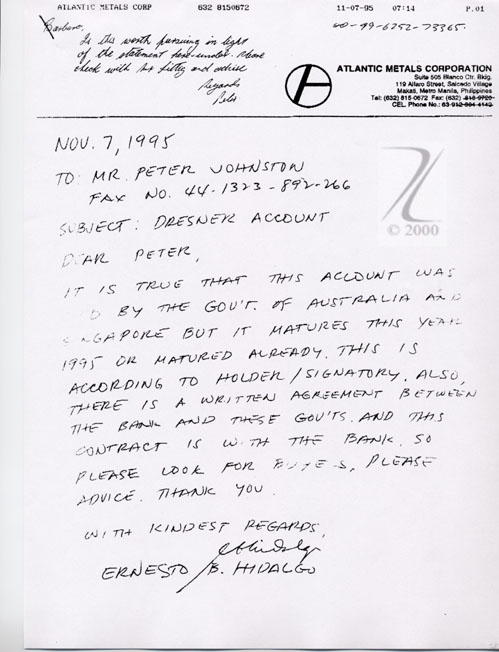 ATLANTIC METALS CORP 632 8150672 11-07-95 07:14 P.01
Barbara,
Is this worth pursuing in light
of the statement here-under. Please
check with and advise
Regards
Peter
00-99-6252-73365.
ATLANTIC METALS CORPORATION
Suite 505 Blanco Ctr. Bkig.
119 Alfaro Street, Salcedo Village
Makati, Metro Manila, Philippines
Tel: (632) 815-0672 Fax: (632)
CEL. Phone No.:
NOV. 7, 1995
TO: MR. PETER JOHNSTON
FAX NO. 44-1323-892-266
© 2000
SUBJECT: DRESNER ACCOUNT
DEAR PETER,
IT IS TRUE THAT THIS ACCOUNT WAS
D BY THE GOV'T. OF AUSTRALIA AND
SINGAPORE BUT IT MATURES THIS YEAR
1995 OR MATURED ALREADY. THIS IS
ACCORDING TO HOLDER/SIGNATORY. ALSO,
THERE IS A WRITTEN AGREEMENT BETWEEN
THE BANK AND THESE GOV'TS. AND THIS
CONTRACT IS WITH THE BANK. SO
PLEASE LOOK FOR PLEASE
ADVICE. THANK YOU.
WITH KINDEST REGARDS,
ERNESTO B. HIDALGO